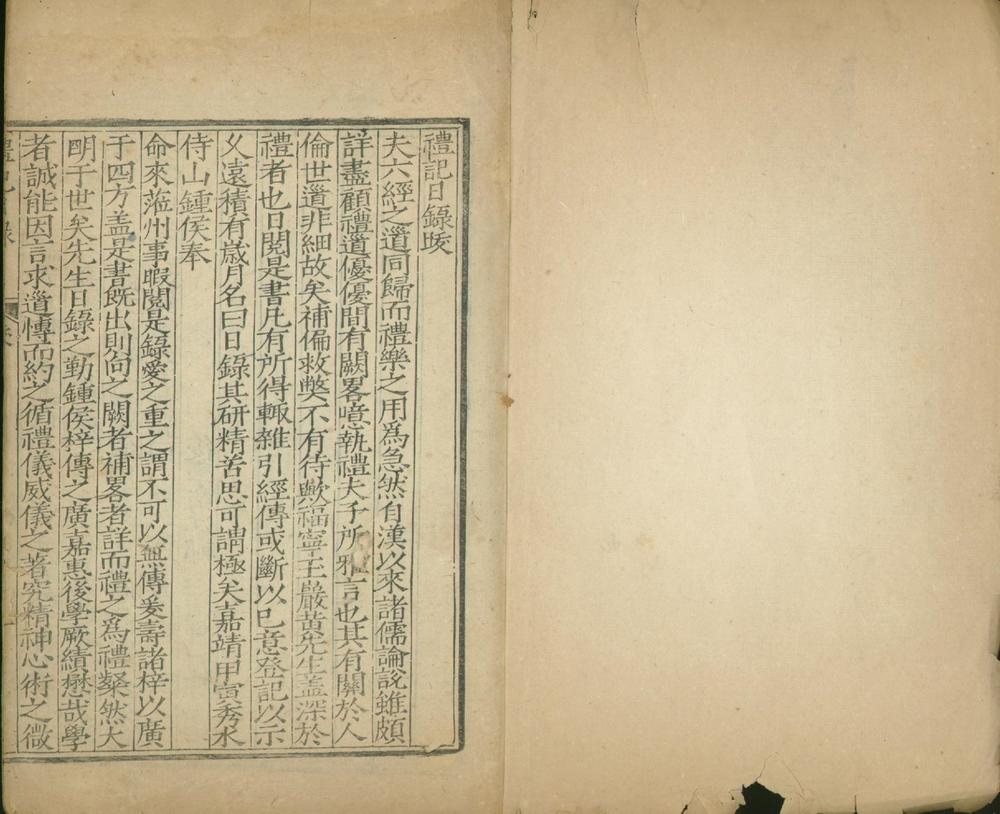 禮記日録跋
夫六經之道同歸而禮樂之用爲急然自漢以來諸儒論說雖頗
詳盡顧禮道優優間有闕畧噫執禮夫子所雅言也其有關於人
倫世道非細故矣補偏救獘不有待歟福寧王巖黄先生盖深於
禮者也日閱是書凡有所得輙雜引經傳或斷以已意登記以示
乆遠積有歲月名曰日録其研精苦思可謂極矣嘉靖甲寅秀水
侍山鍾侯奉
命來蒞州事暇閱是録愛之重之謂不可以無傳爰壽諸梓以廣
于四方盖是書旣出則向之闕者補畧者詳而禮之爲禮粲然大
明于世矣先生日録之勤鍾侯梓傳之廣嘉惠後學厥績懋哉學
者誠能因言求道慱而約之循禮儀威儀之著究精神心術之微
禮記 録 跋